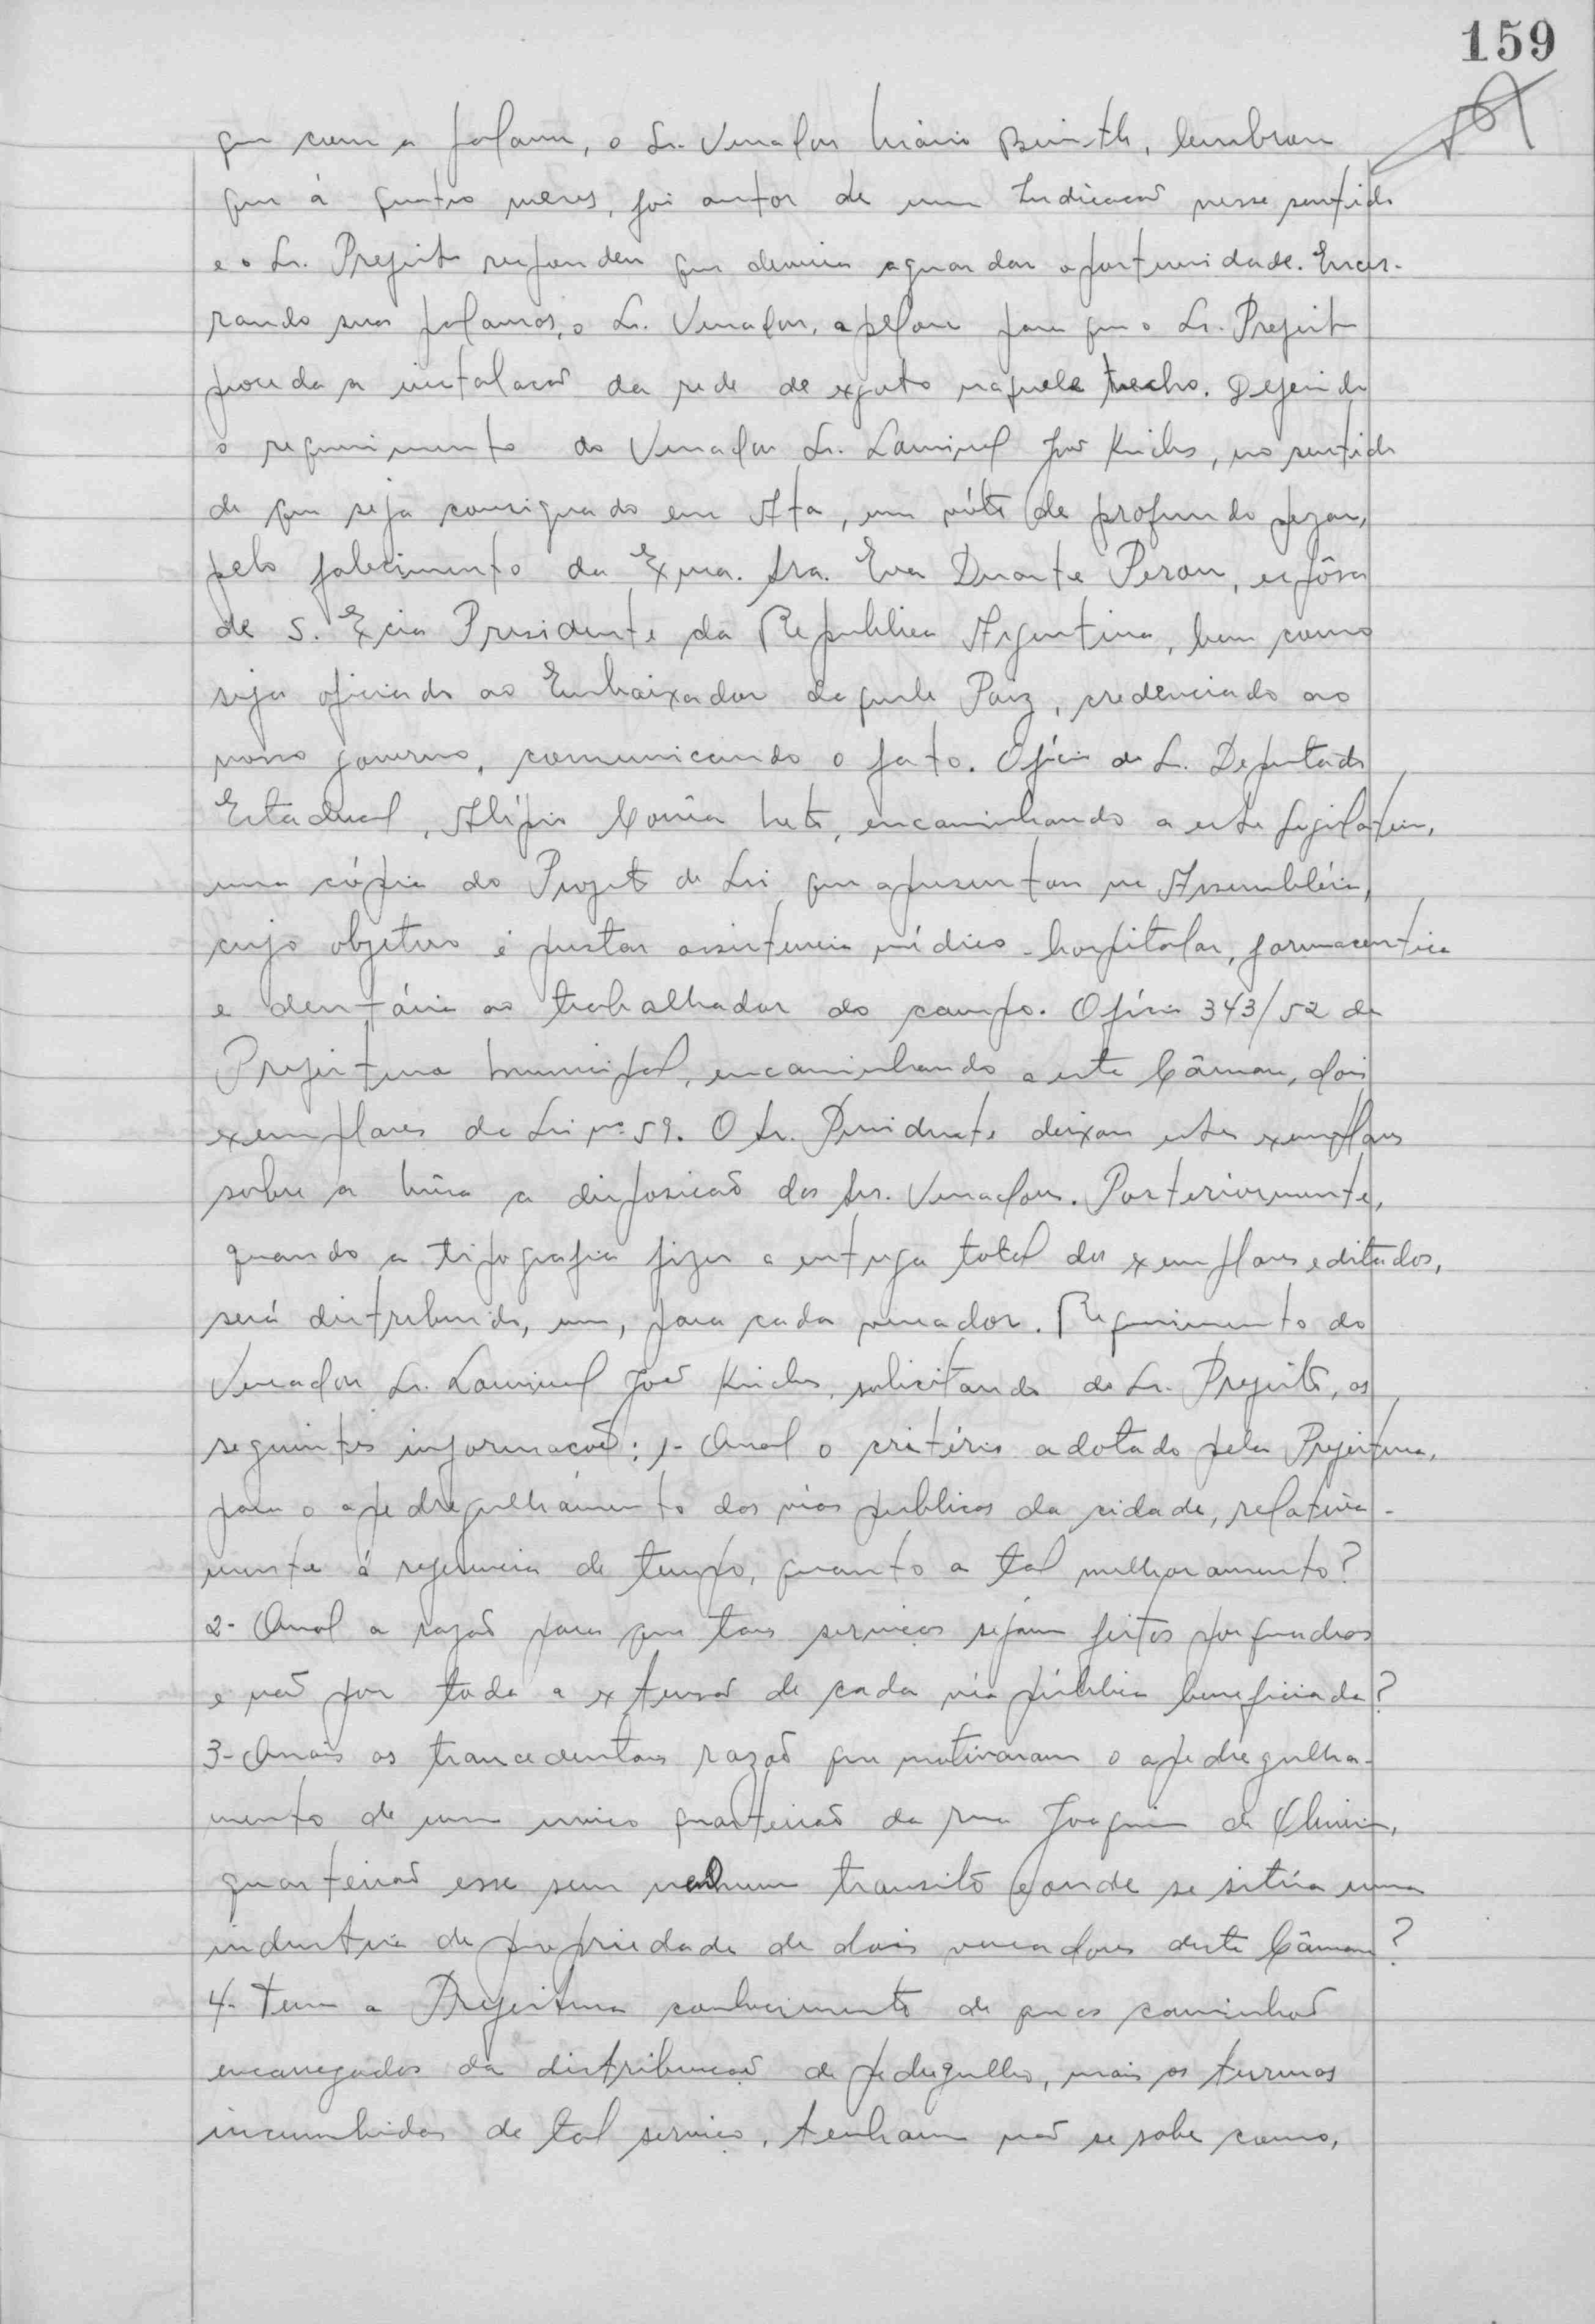 159
que com a palavra, o Sr. Vereador Mário Beni-th, lembrou
que á quatro meses, foi autor de uma Indicação nesse sentido
e o Sr. Prefeito respondeu que deveria aguardar oportunidade. Encer-
rando suas palavras, o Sr. Vereador, apelou para que o Sr. Prefeito
proceda a instalação da rede de exgoto naquele trecho. Deferido
o requerimento do Vereador Sr. Lauripel José Krichs, no sentido
de que seja consignado em Ata, um vóto de profundo pezar,
pelo falecimento da Exma. Sra. Eva Duarte Peron, espôsa
de S. Excia Presidente da Republica Argentina, bem como
seja oficiado ao Embaixador daquele Paiz, credenciado ao
nosso governo, comunicando o fato. Ofício do Sr. Deputado
Estadual, Alípio Corrêa Neto, encaminhando a este Legislativo,
uma cópia do Projeto de Lei que apresentou na Assembléia,
cujo objetivo é prestar assistencia médico-hospitalar, farmaceutica
e dentária ao trabalhador do campo. Ofício 343/52 da
Prefeitura Municipal, encaminhando a esta Câmara, dois
exemplares da Lei nº 59. O Sr. Presidente deixou estes exemplares
sobre a Mêsa a disposição dos Srs. Vereadores. Posteriormente,
quando a tipografia fizer a entrega total dos exemplares editados,
será distribuido, um, para cada vereador. Requerimento do
Vereador Sr. Lauripel José Krichs, solicitando do Sr. Prefeito, as
seguintes informações: 1- Qual o critério adotado pela Prefeitura,
para o apedregulhamento das vias publicas da cidade, relativa-
mente á regencia de tempo, quanto a tal melhoramento?
2- Qual a razão para que tais serviços sejam feitos por quadras
e não por toda a extensão de cada via pública beneficiada?
3- Quais as trancedentais razoẽs que motivaram o apedregulha-
mento de um unico quarteirão da rua Joaquim de Oliveira,
quarteirão esse sem nenhum transito e onde se sitúa uma
industria de propriedade de dois vereadores desta Câmara?
4- Tem a Prefeitura conhecimento de que os caminhoẽs
encarregados da distribuição de pedregulho, mais as turmas
incumbidas de tal serviço, tenham não se sabe como,